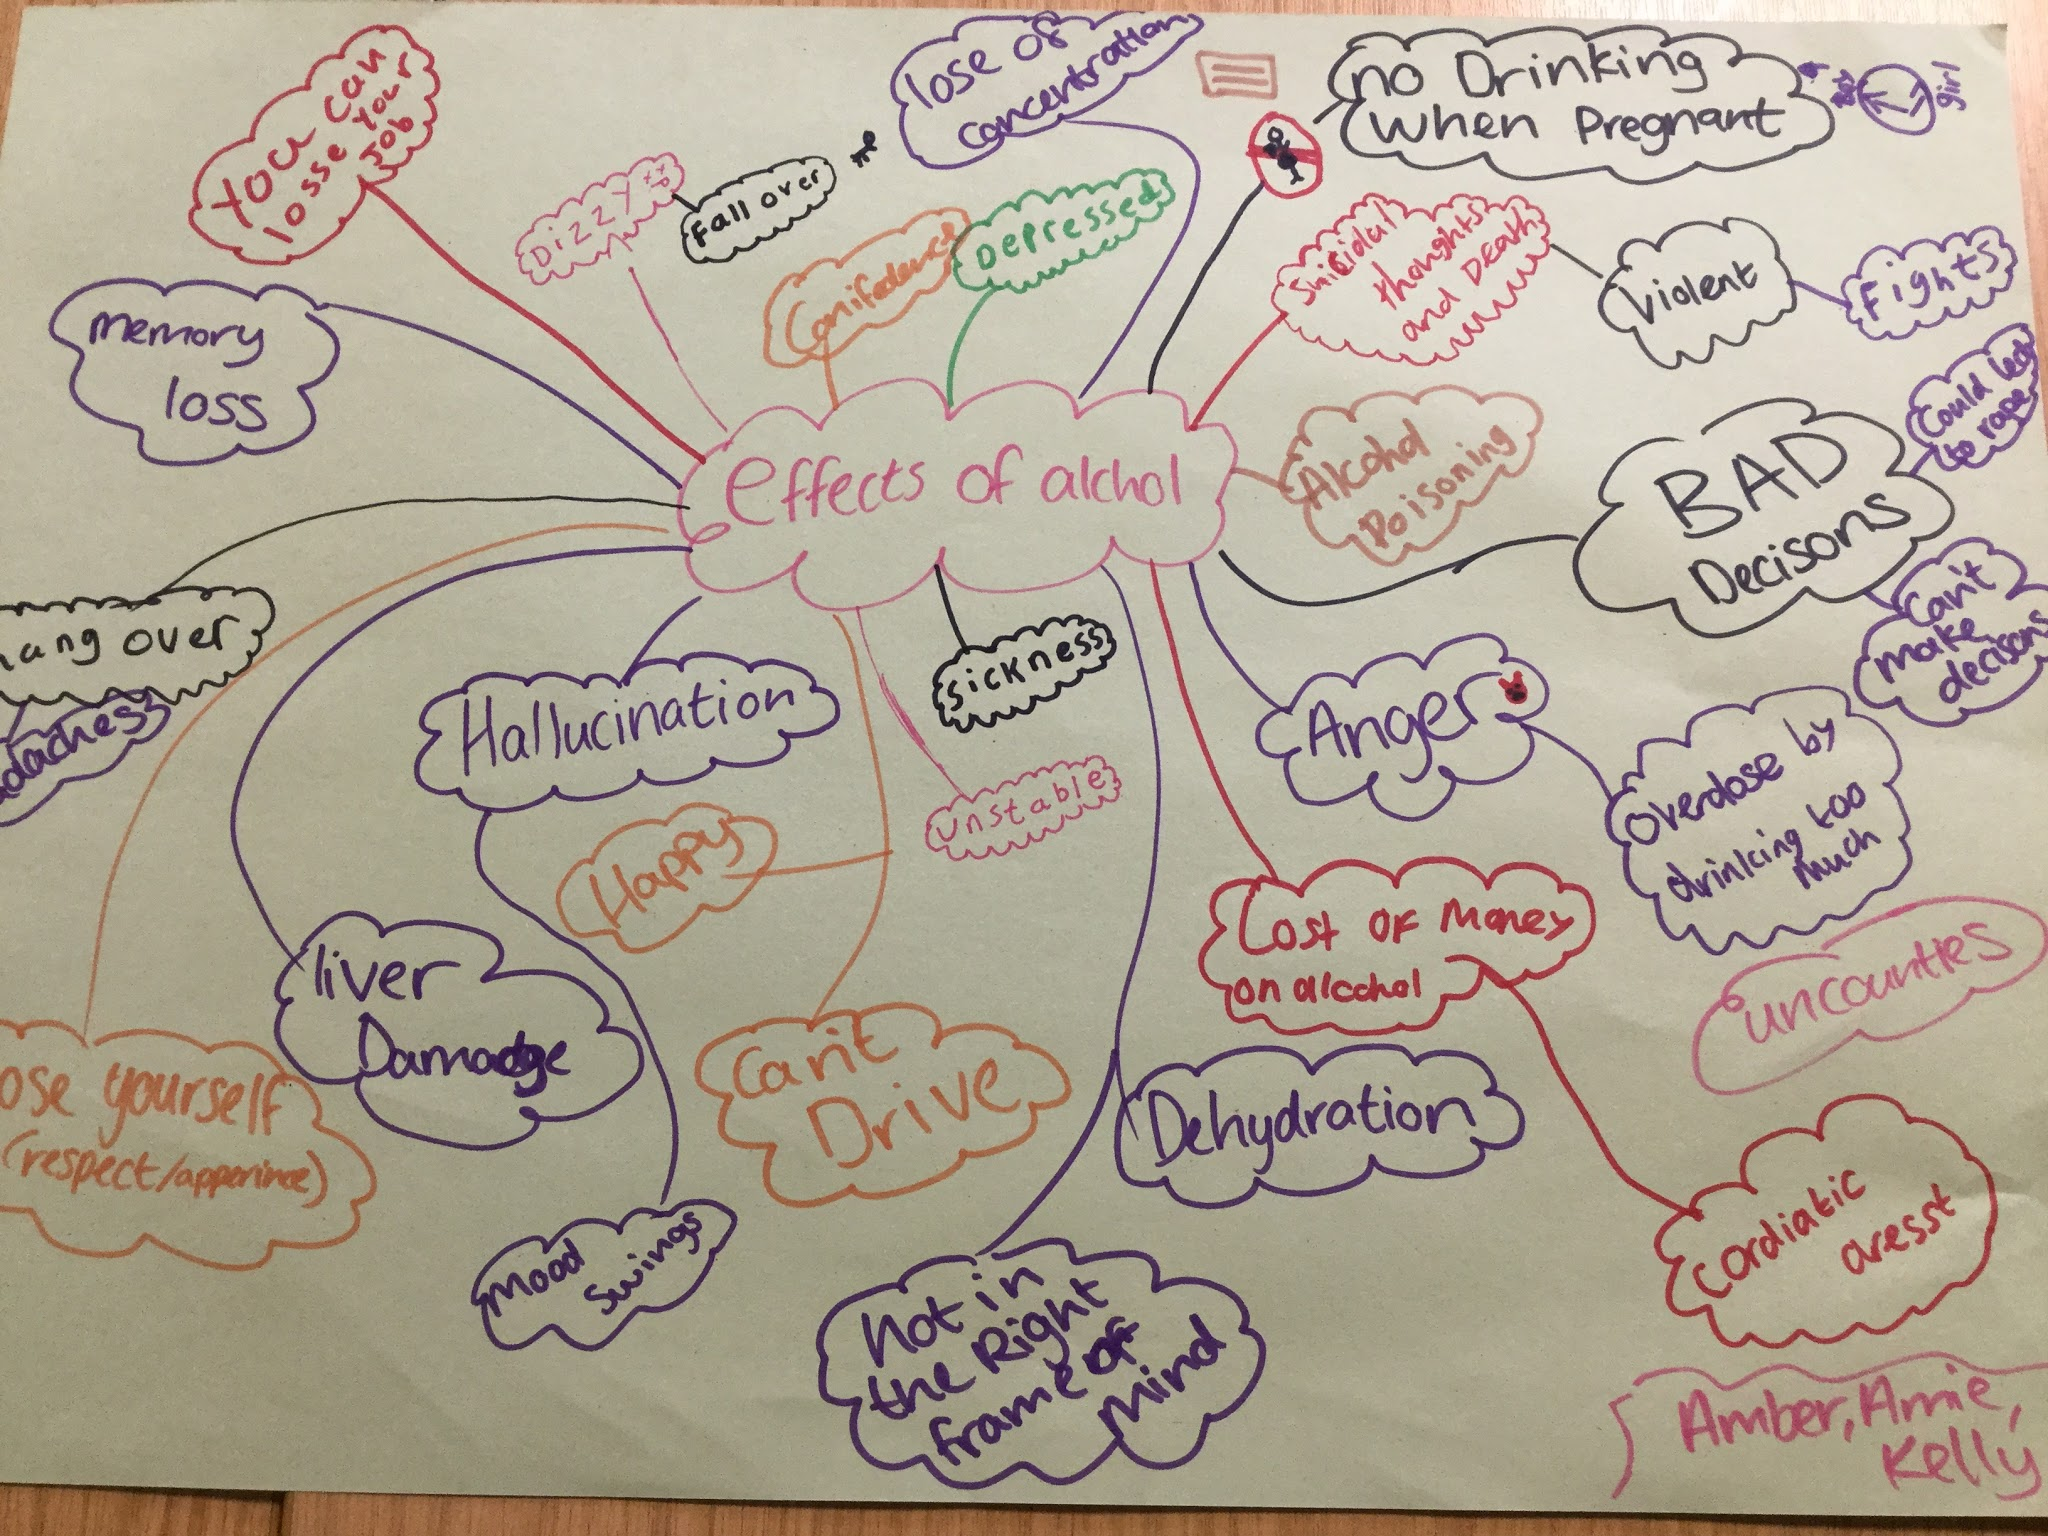 You can
losse your
job
Dizzy
Fall over
lose of
concentration
no Drinking
when Pregnant
girl
Conifedence
Depressed
Suicidal
thoughts
and Death
Violent
Fights
memory
loss
effects of alchol
Alcohol
Poisoning
BAD
Decisons
Could led
to rape
Can't
make
decisons
hang over
daches
Hallucination
Sickness
unstable
Anger
overdose by
drinking too
much
Happy
Cost of Money
on alcohol
uncounties
liver
Damadge
ose yourself
(respect/apperince)
Can't
Drive
Dehydration
Cardiatic
aresst
Mood
Swings
not in
the Right
frame of
Mind
Amber, Amie,
Kelly